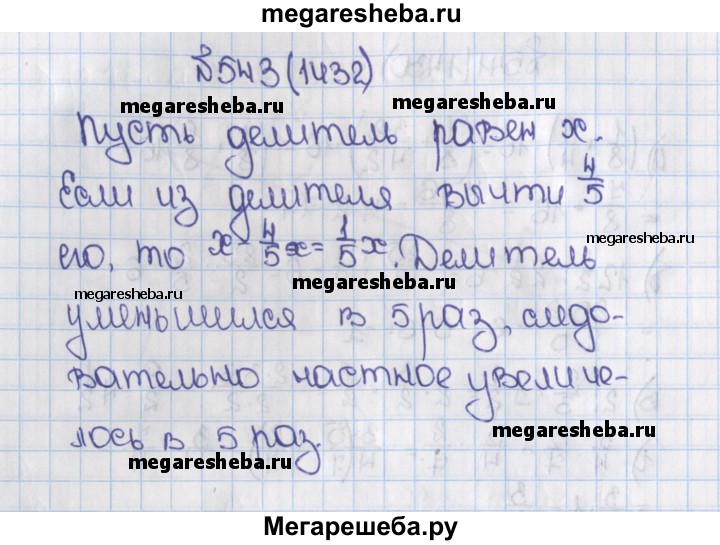 megaresheba.ru
№543(1432)
megaresheba.ru megaresheba.ru
Пусть делитель равен x.
Если из делителя вычти 4/5
megaresheba.ru
его, то x - 4/5x = 1/5x. Делитель
megaresheba.ru
уменьшился в 5 раз, следо-
вательно частное увеличе-
лось в 5 раз.
megaresheba.ru
megaresheba.ru
Мегарешеба.ру